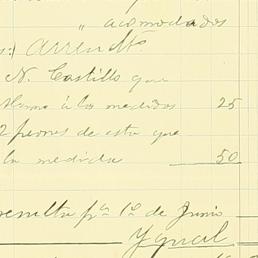 " acomodados
s:) Arrendto
N. Castillo que
á los medidos 25
2 peones de esta que
la medida 50
resulta pa 1o de Junio
Ygual